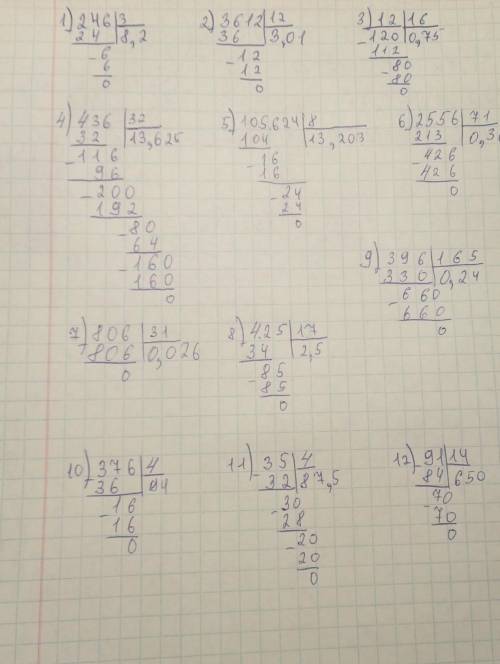 1) 246 | 3
24 | 8,2
-6
6
0
2) 3612 | 12
36 | 3,01
-12
12
0
3) 12 | 16
-120 | 0,75
112
-80
80
0
4) 436 | 32
32 | 13,625
-116
96
-200
192
-80
64
-160
160
0
5) 105.624 | 8
104 | 13,203
-16
16
-24
24
0
6) 2556 | 71
213 | 0,3
-426
426
0
7) 806 | 31
806 | 0,026
0
8) 4.25 | 17
34 | 2,5
-85
85
0
9) 396 | 165
330 | 0,24
-660
660
0
10) -376 | 4
36 | 94
-16
16
0
11) -35 | 4
32 | 87,5
-30
28
-20
20
0
12) -91 | 14
84 | 650
-70
70
0